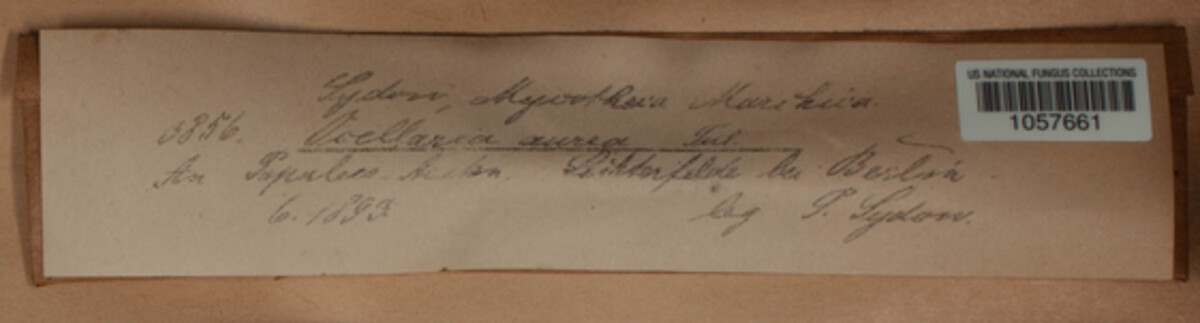 Sydow, Mycotheca Marchica.
3856. Ocellaria aurea Tul.
An Populus- Lichterfelde bei Berlin
6. 1893 leg P. Sydow.
US NATIONAL FUNGUS COLLECTIONS
1057661